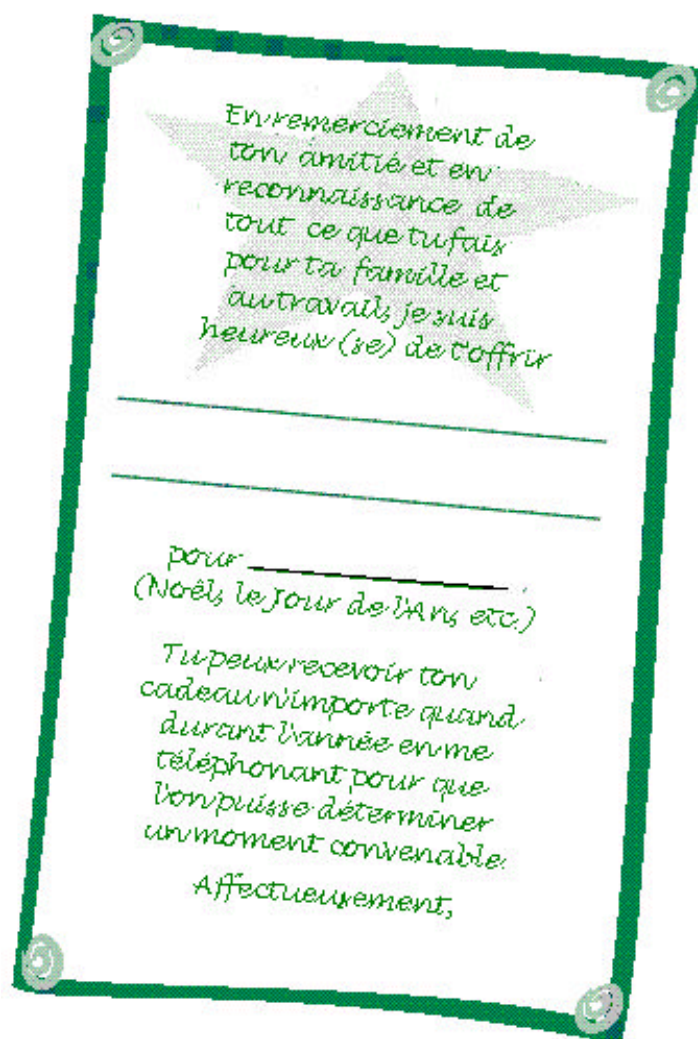 En remerciement de
ton amitié et en
reconnaissance de
tout ce que tu fais
pour ta famille et
au travail, je suis
heureux (se) de t'offrir
pour
(Noël, le Jour de l'An, etc.)
Tu peux recevoir ton
cadeau n'importe quand
durant l'année en me
téléphonant pour que
l'on puisse déterminer
un moment convenable.
Affectueusement,